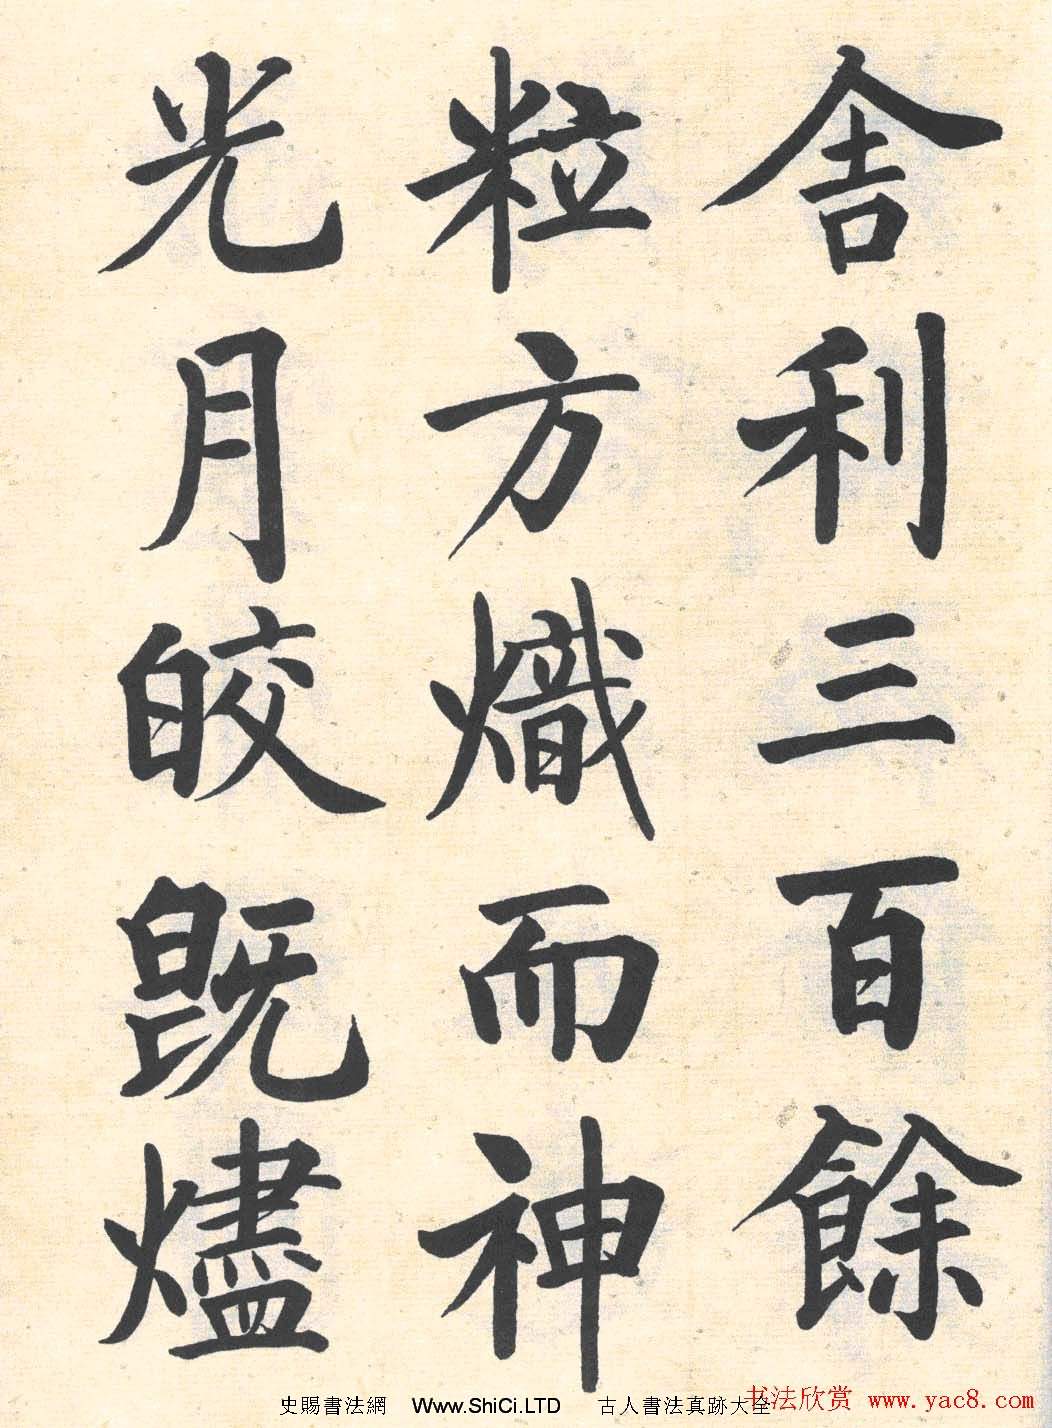 舎利三百餘
粒方熾而神
光月皎既燼
史賜書法網 Www.ShiCi.LTD 古人書法真跡大全
书法欣赏 www.yac8.com